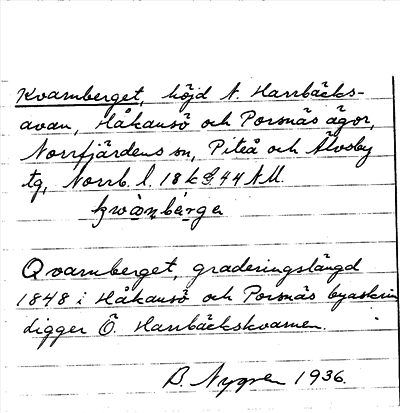 Kvarnberget, höjd N. Harrbäcks-
avan, Håkansö och Porsnäs ägor,
Norrfjärdens sn, Piteå och Älvsby
tg, Norrb. l. 18 k G. 44 NU.
kwa̠nbærge
Qvarnberget, graderingslängd
1848 i Håkansö och Porsnäs byaskrin
digger Ö. Harrbäckskvarnen.
B. Nygren 1936.